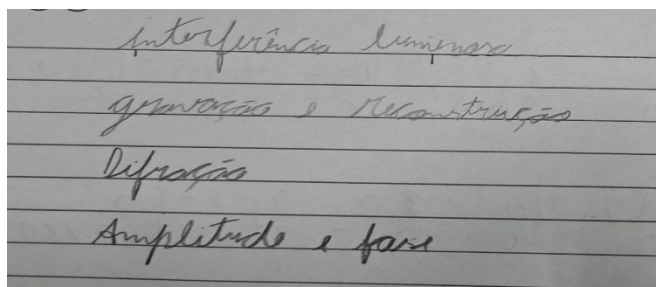 interferência luminosa
gravação e reconstrução
Difração
Amplitude e fase